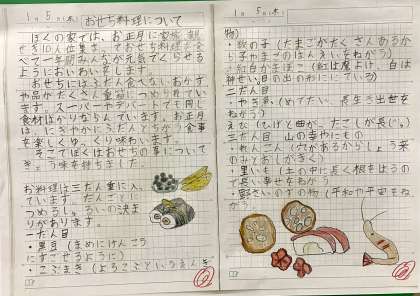 1月5日(木)
おせち料理について
ぼくの家では、お正月に家族、親
せき10人位集まっておせち料理を食
べて一年間みんなが元気でくらせる
ようにおいわいをします。
おせちにはふだん食べないおかず
や品がたくさん重箱につめられてい
ます。スーパーやデパートでも同じ
食材ばかりならんでいます。お正月
は、にぎやかにふだんとちがう食事
を楽しくゆっくり味わいます。
そこでぼくはおせちの事につい
て
味を持ちました。
お料理は三だん重に入
ています。だんごとに
つめるしゅるいの決ま
りがあります。
一だん目
・黒豆(まめにけんこう
にすごせるように)
・こぶまき(よろこぶというえんぎ
1月5日(木)
物)
・数の子(たまごがたくさんあるか
ら子やまごのはんえいをねがう)
・紅白かまぼこ(紅は魔よけ、白は
神せい、日の出の形ににている)
二だん目
・やき魚(めでたい、長生き出世を
ねがう)
えび(ひげと曲がったこしが長じゅ)
三だん目 山の幸やにもの
・れんこん(穴があるからしょう来
のみとおしがきく)
・里いも(土の中に長く根をはるの
で長い幸せをねがう)
・野さいのすの物(平和や平安をね
がう)